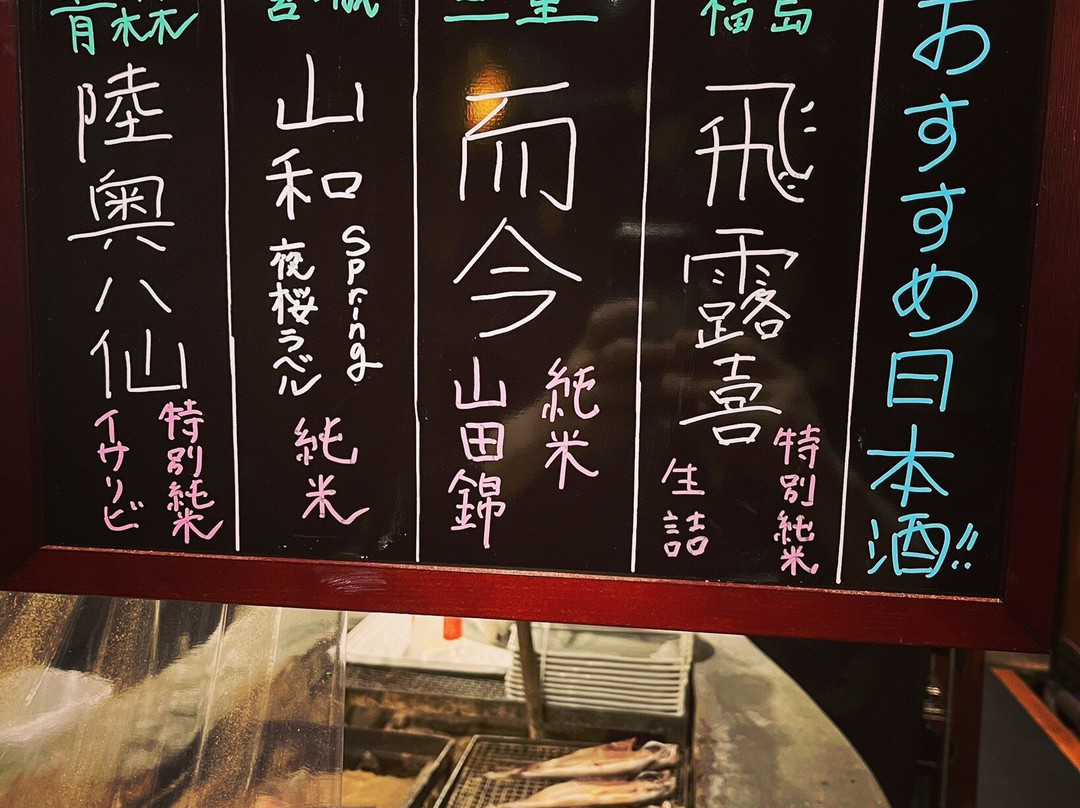 おすすめ日本酒!!
福島
飛露喜
特別純米
生詰
三重
而今
純米
山田錦
宮城
山和
Spring
夜桜ラベル
純米
青森
陸奥八仙
特別純米
イサリビ